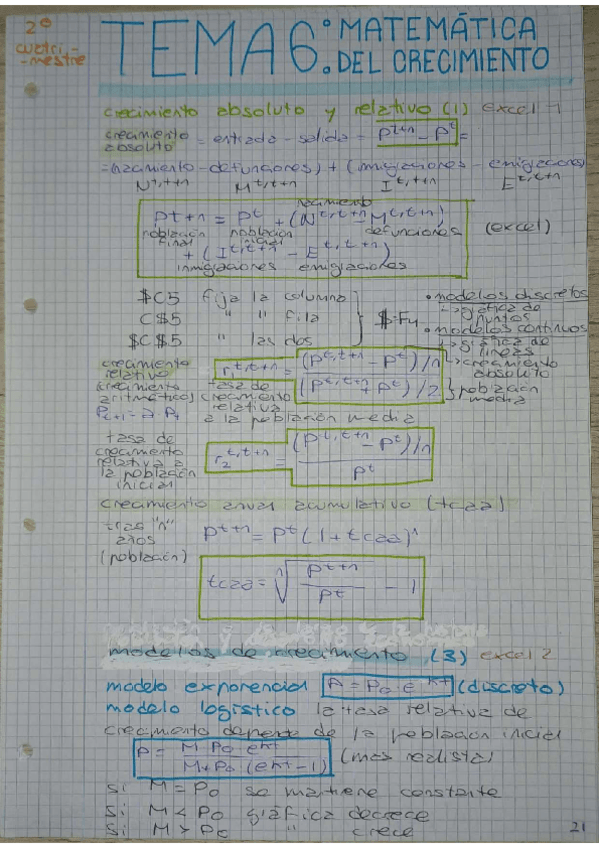 2º cuatri-
-mestre
TEMA 6: MATEMÁTICA
DEL CRECIMIENTO
crecimiento absoluto y relativo (1) excel 1
crecimiento absoluto = entrada - salida = P^t+n - P^t =
=(nacimiento - defunciones) + (inmigraciones - emigraciones)
N^t,t+n M^t,t+n I^t,t+n E^t,t+n
nacimiento
P^t+n = P^t + (N^t,t+n - M^t,t+n)
población final población inicial defunciones (excel)
+ (I^t,t+n - E^t,t+n)
inmigraciones emigraciones
$C5 fija la columna
C$5 " " fila
$C$5 " las dos
$ = F4
• modelos discretos
↳ gráfica de puntos
• modelos continuos
↳ gráfica de líneas
crecimiento relativo
(crecimiento aritmético)
P_t+1 = a · P_t
r^t,t+n = (P^t,t+n - P^t)/n
(P^t,t+n + P^t)/2
↳ crecimiento absoluto
} población media
tasa de crecimiento relativa
a la población media
tasa de crecimiento relativa a la población inicial
r_2^t,t+n = (P^t,t+n - P^t)/n
P^t
crecimiento anual acumulativo (tcaa)
tras "n" años
(población)
P^t+n = P^t (1 + tcaa)^n
tcaa = ⁿ√ P^t+n / P^t - 1
modelos de crecimiento (3) excel 2
modelo exponencial P = P_0 · e^kt (discreto)
modelo logístico la tasa relativa de
crecimiento depende de la población inicial
P = M P_0 e^kt
M + P_0 (e^kt - 1)
(más realista)
si M = P_0 se mantiene constante
si M < P_0 gráfica decrece
si M > P_0 " crece
21